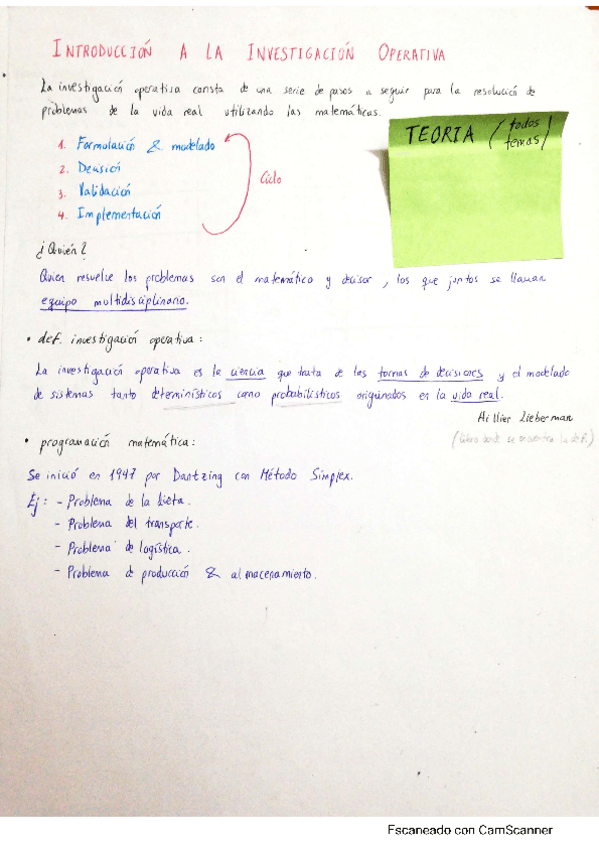 INTRODUCCIÓN A LA INVESTIGACIÓN OPERATIVA
La investigación operativa consta de una serie de pasos a seguir para la resolución de
problemas de la vida real utilizando las matemáticas.
TEORIA (todos temas)
1. Formulación & modelado
2. Decisión
3. Validación
4. Implementación
Ciclo
¿Quién?
Quien resuelve los problemas son el matemático y decisor, los que juntos se llaman
equipo multidisciplinario.
• def. investigación operativa:
La investigación operativa es la ciencia que trata de las tomas de decisiones y el modelado
de sistemas tanto determinísticos como probabilísticos originados en la vida real.
Hillier Lieberman
(libro donde se encuentra la def.)
• programación matemática:
Se inició en 1947 por Dantzing con Método Simplex.
Ej: - Problema de la dieta.
- Problema del transporte.
- Problema de logística.
- Problema de producción & almacenamiento.
Escaneado con CamScanner